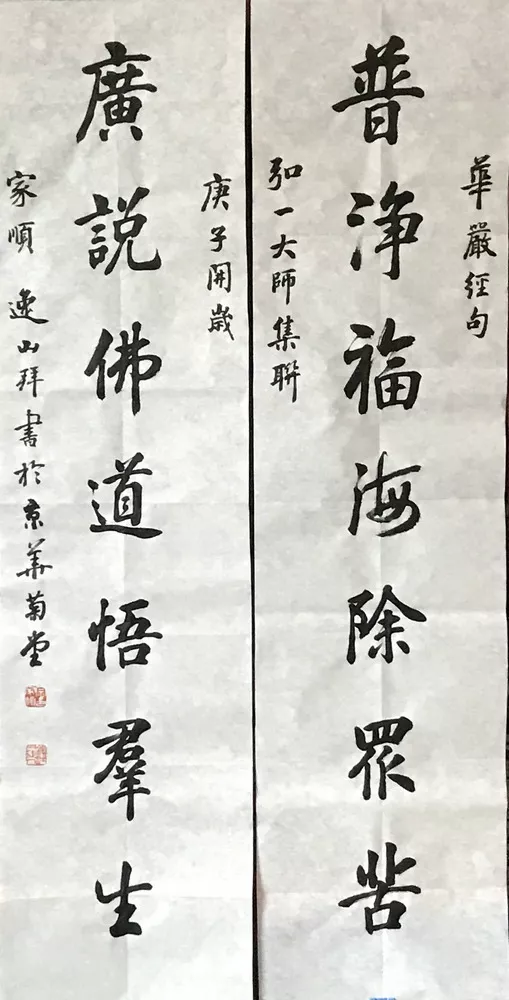 華嚴經句
普淨福海除眾苦
弘一大師集聯
庚子開歲
廣說佛道悟羣生
家順 逸山拜書於京華菊堂